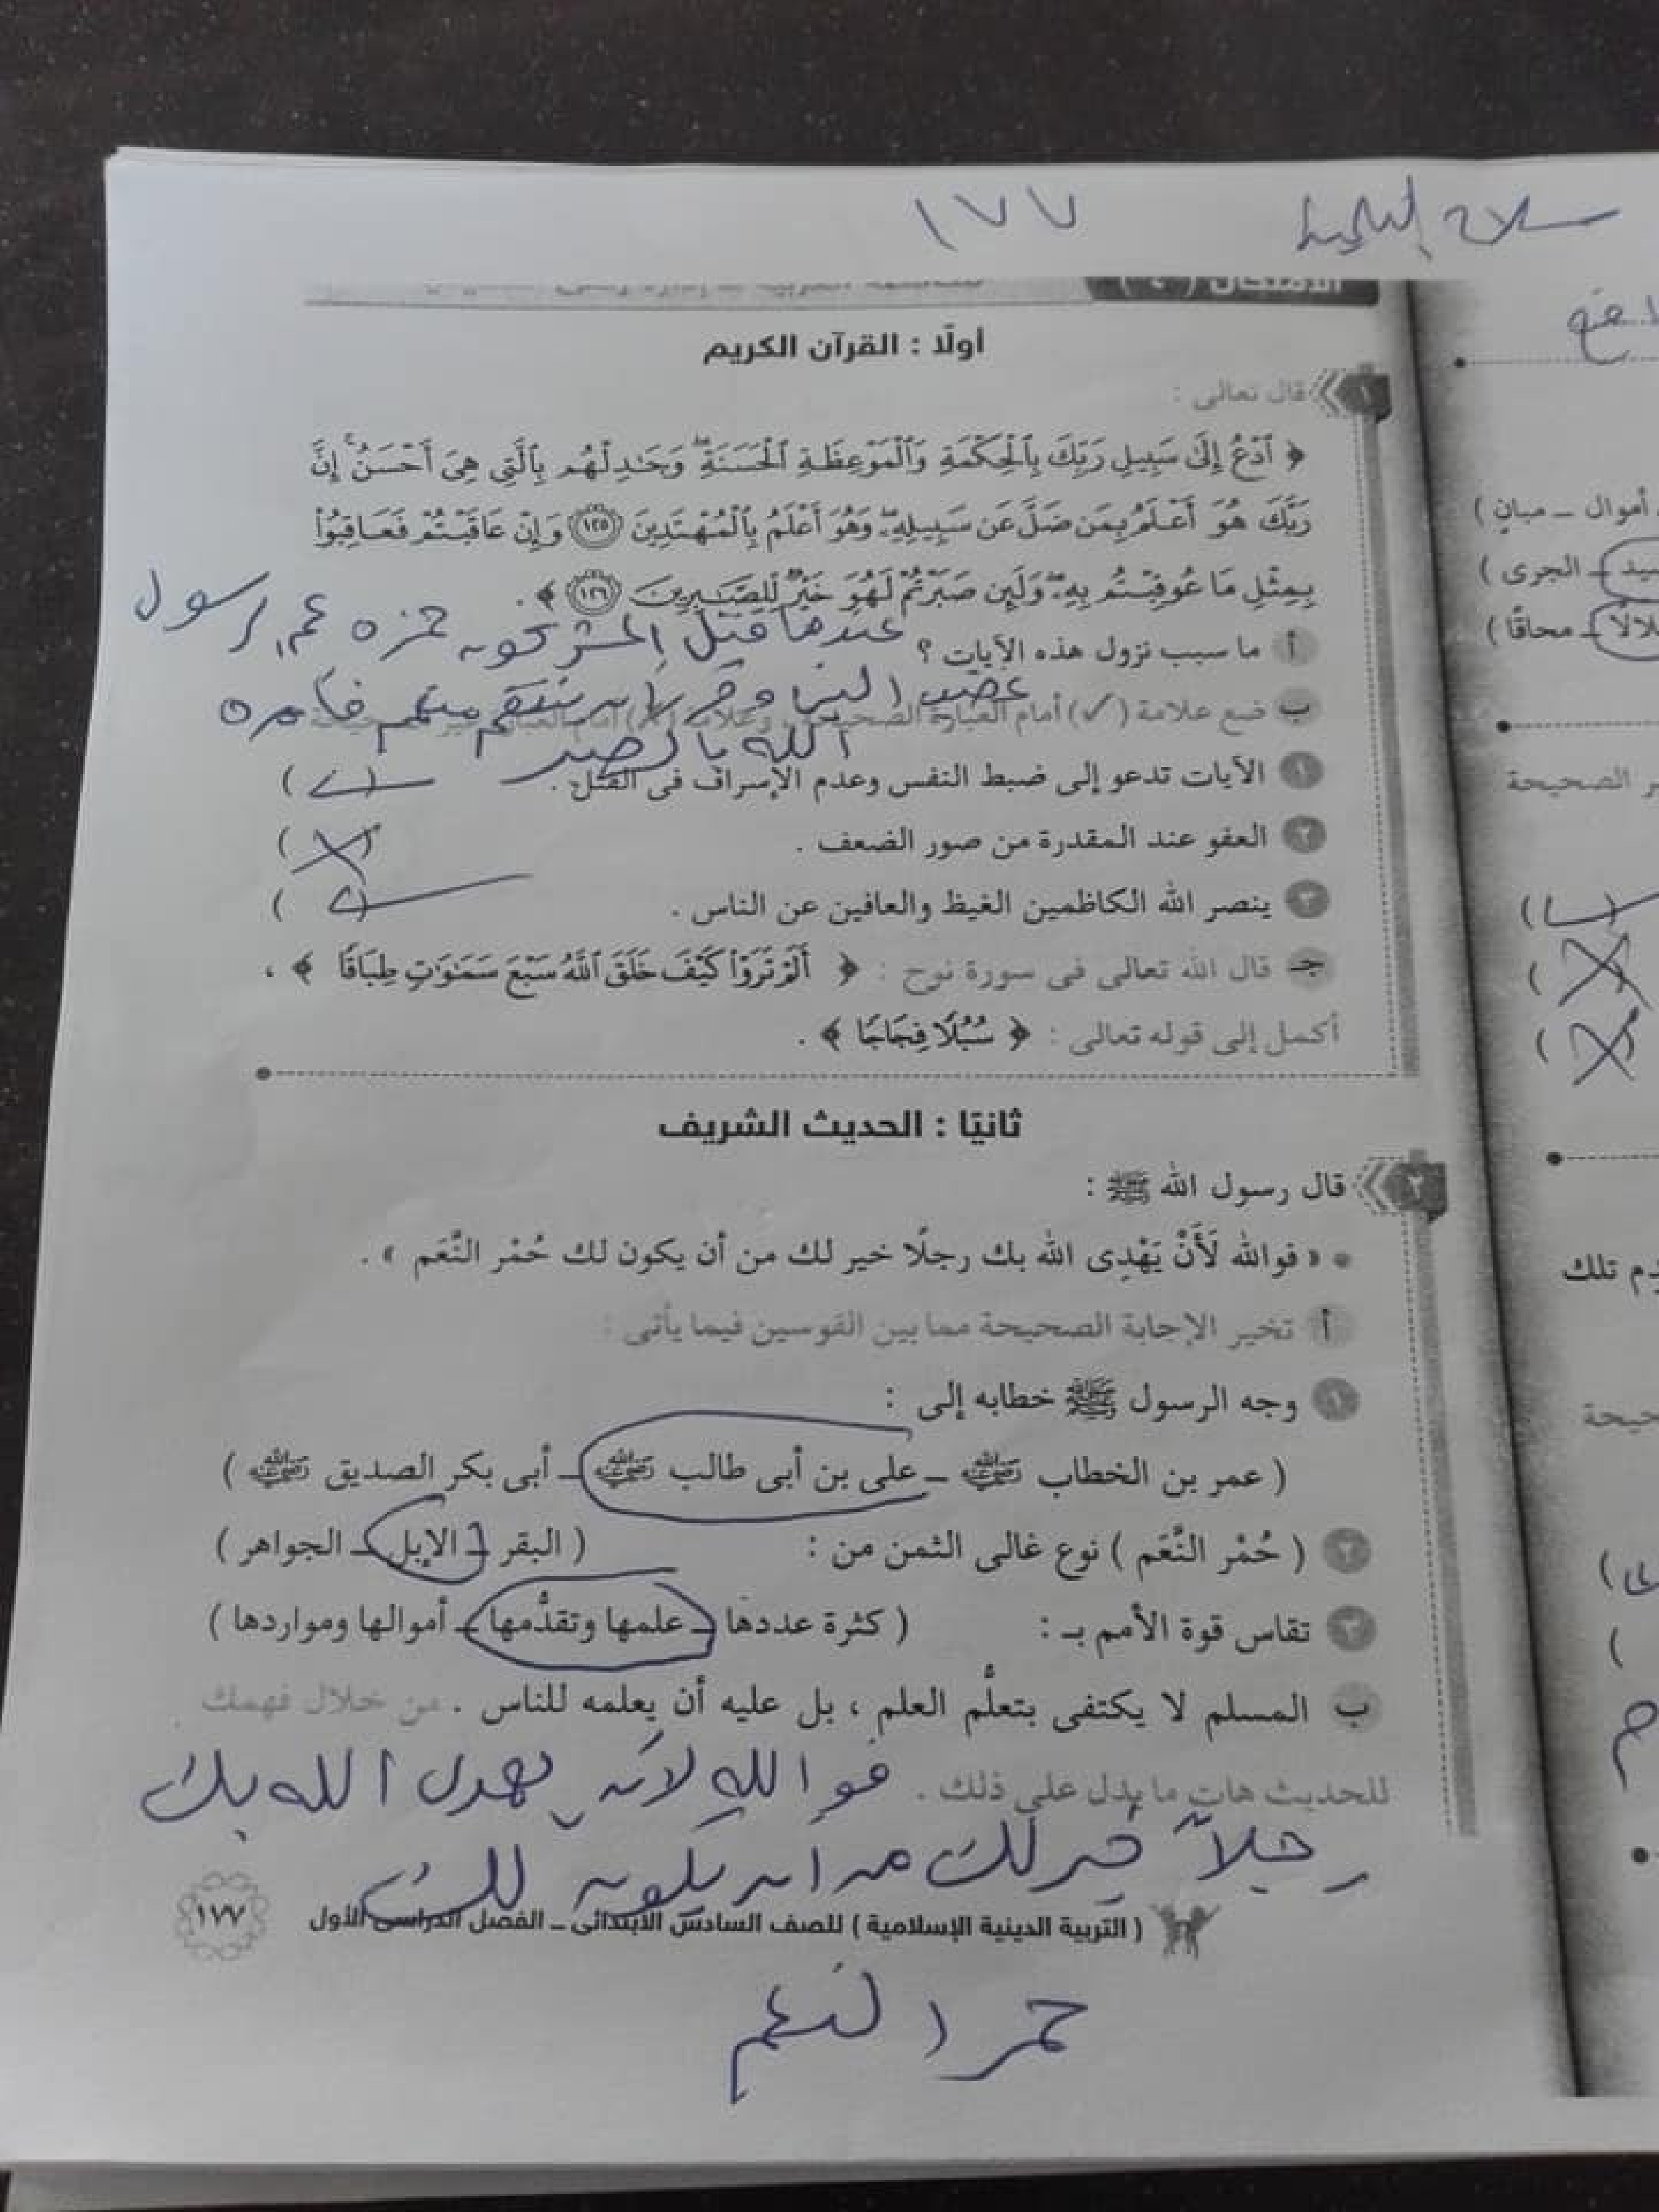 سلاح التلميذ ١٧٧
الامتحان (٤)
أولًا : القرآن الكريم
١ قال تعالى :
﴿ ٱدْعُ إِلَىٰ سَبِيلِ رَبِّكَ بِٱلْحِكْمَةِ وَٱلْمَوْعِظَةِ ٱلْحَسَنَةِ ۖ وَجَـٰدِلْهُم بِٱلَّتِى هِىَ أَحْسَنُ ۚ إِنَّ
رَبَّكَ هُوَ أَعْلَمُ بِمَن ضَلَّ عَن سَبِيلِهِۦ ۖ وَهُوَ أَعْلَمُ بِٱلْمُهْتَدِينَ ١٢٥ وَإِنْ عَاقَبْتُمْ فَعَاقِبُوا۟
بِمِثْلِ مَا عُوقِبْتُم بِهِۦ ۖ وَلَئِن صَبَرْتُمْ لَهُوَ خَيْرٌ لِّلصَّـٰبِرِينَ ١٢٦ ﴾ .
أ ما سبب نزول هذه الآيات ؟ عندما قتل المشركون حمزه عم الرسول
غضب النبى وقرر ان ينتقم منهم فأمره
الله بالصبر
ب ضع علامة (✓) أمام العبارة الصحيحة ، وعلامة (✗) أمام العبارة غير الصحيحة
١ الآيات تدعو إلى ضبط النفس وعدم الإسراف فى القتل . (✓)
٢ العفو عند المقدرة من صور الضعف . (✗)
٣ ينصر الله الكاظمين الغيظ والعافين عن الناس . (✓)
جـ قال الله تعالى فى سورة نوح : ﴿ أَلَمْ تَرَوْا۟ كَيْفَ خَلَقَ ٱللَّهُ سَبْعَ سَمَـٰوَٰتٍ طِبَاقًا ﴾ ،
أكمل إلى قوله تعالى : ﴿ سُبُلًا فِجَاجًا ﴾ .
ثانيًا : الحديث الشريف
٢ قال رسول الله ﷺ :
« فوالله لَأَنْ يَهْدِى الله بك رجلًا خير لك من أن يكون لك حُمْر النَّعَم » .
أ تخير الإجابة الصحيحة مما بين القوسين فيما يأتى :
١ وجه الرسول ﷺ خطابه إلى :
( عمر بن الخطاب رضي الله عنه – على بن أبى طالب رضي الله عنه – أبى بكر الصديق رضي الله عنه )
٢ ( حُمْر النَّعَم ) نوع غالى الثمن من : ( البقر – الإبل – الجواهر )
٣ تقاس قوة الأمم بـ : ( كثرة عددها – علمها وتقدُّمها – أموالها ومواردها )
ب المسلم لا يكتفى بتعلُّم العلم ، بل عليه أن يعلمه للناس . من خلال فهمك
للحديث هات ما يدل على ذلك . فوالله لأن يهدى الله بك
رجلاً خير لك من ان يكون لك
( التربية الدينية الإسلامية ) للصف السادس الابتدائى – الفصل الدراسى الأول ١٧٧
حمر النعم
أموال – مبانٍ )
– الجرى )
– محاقًا )
الصحيحة
تلك